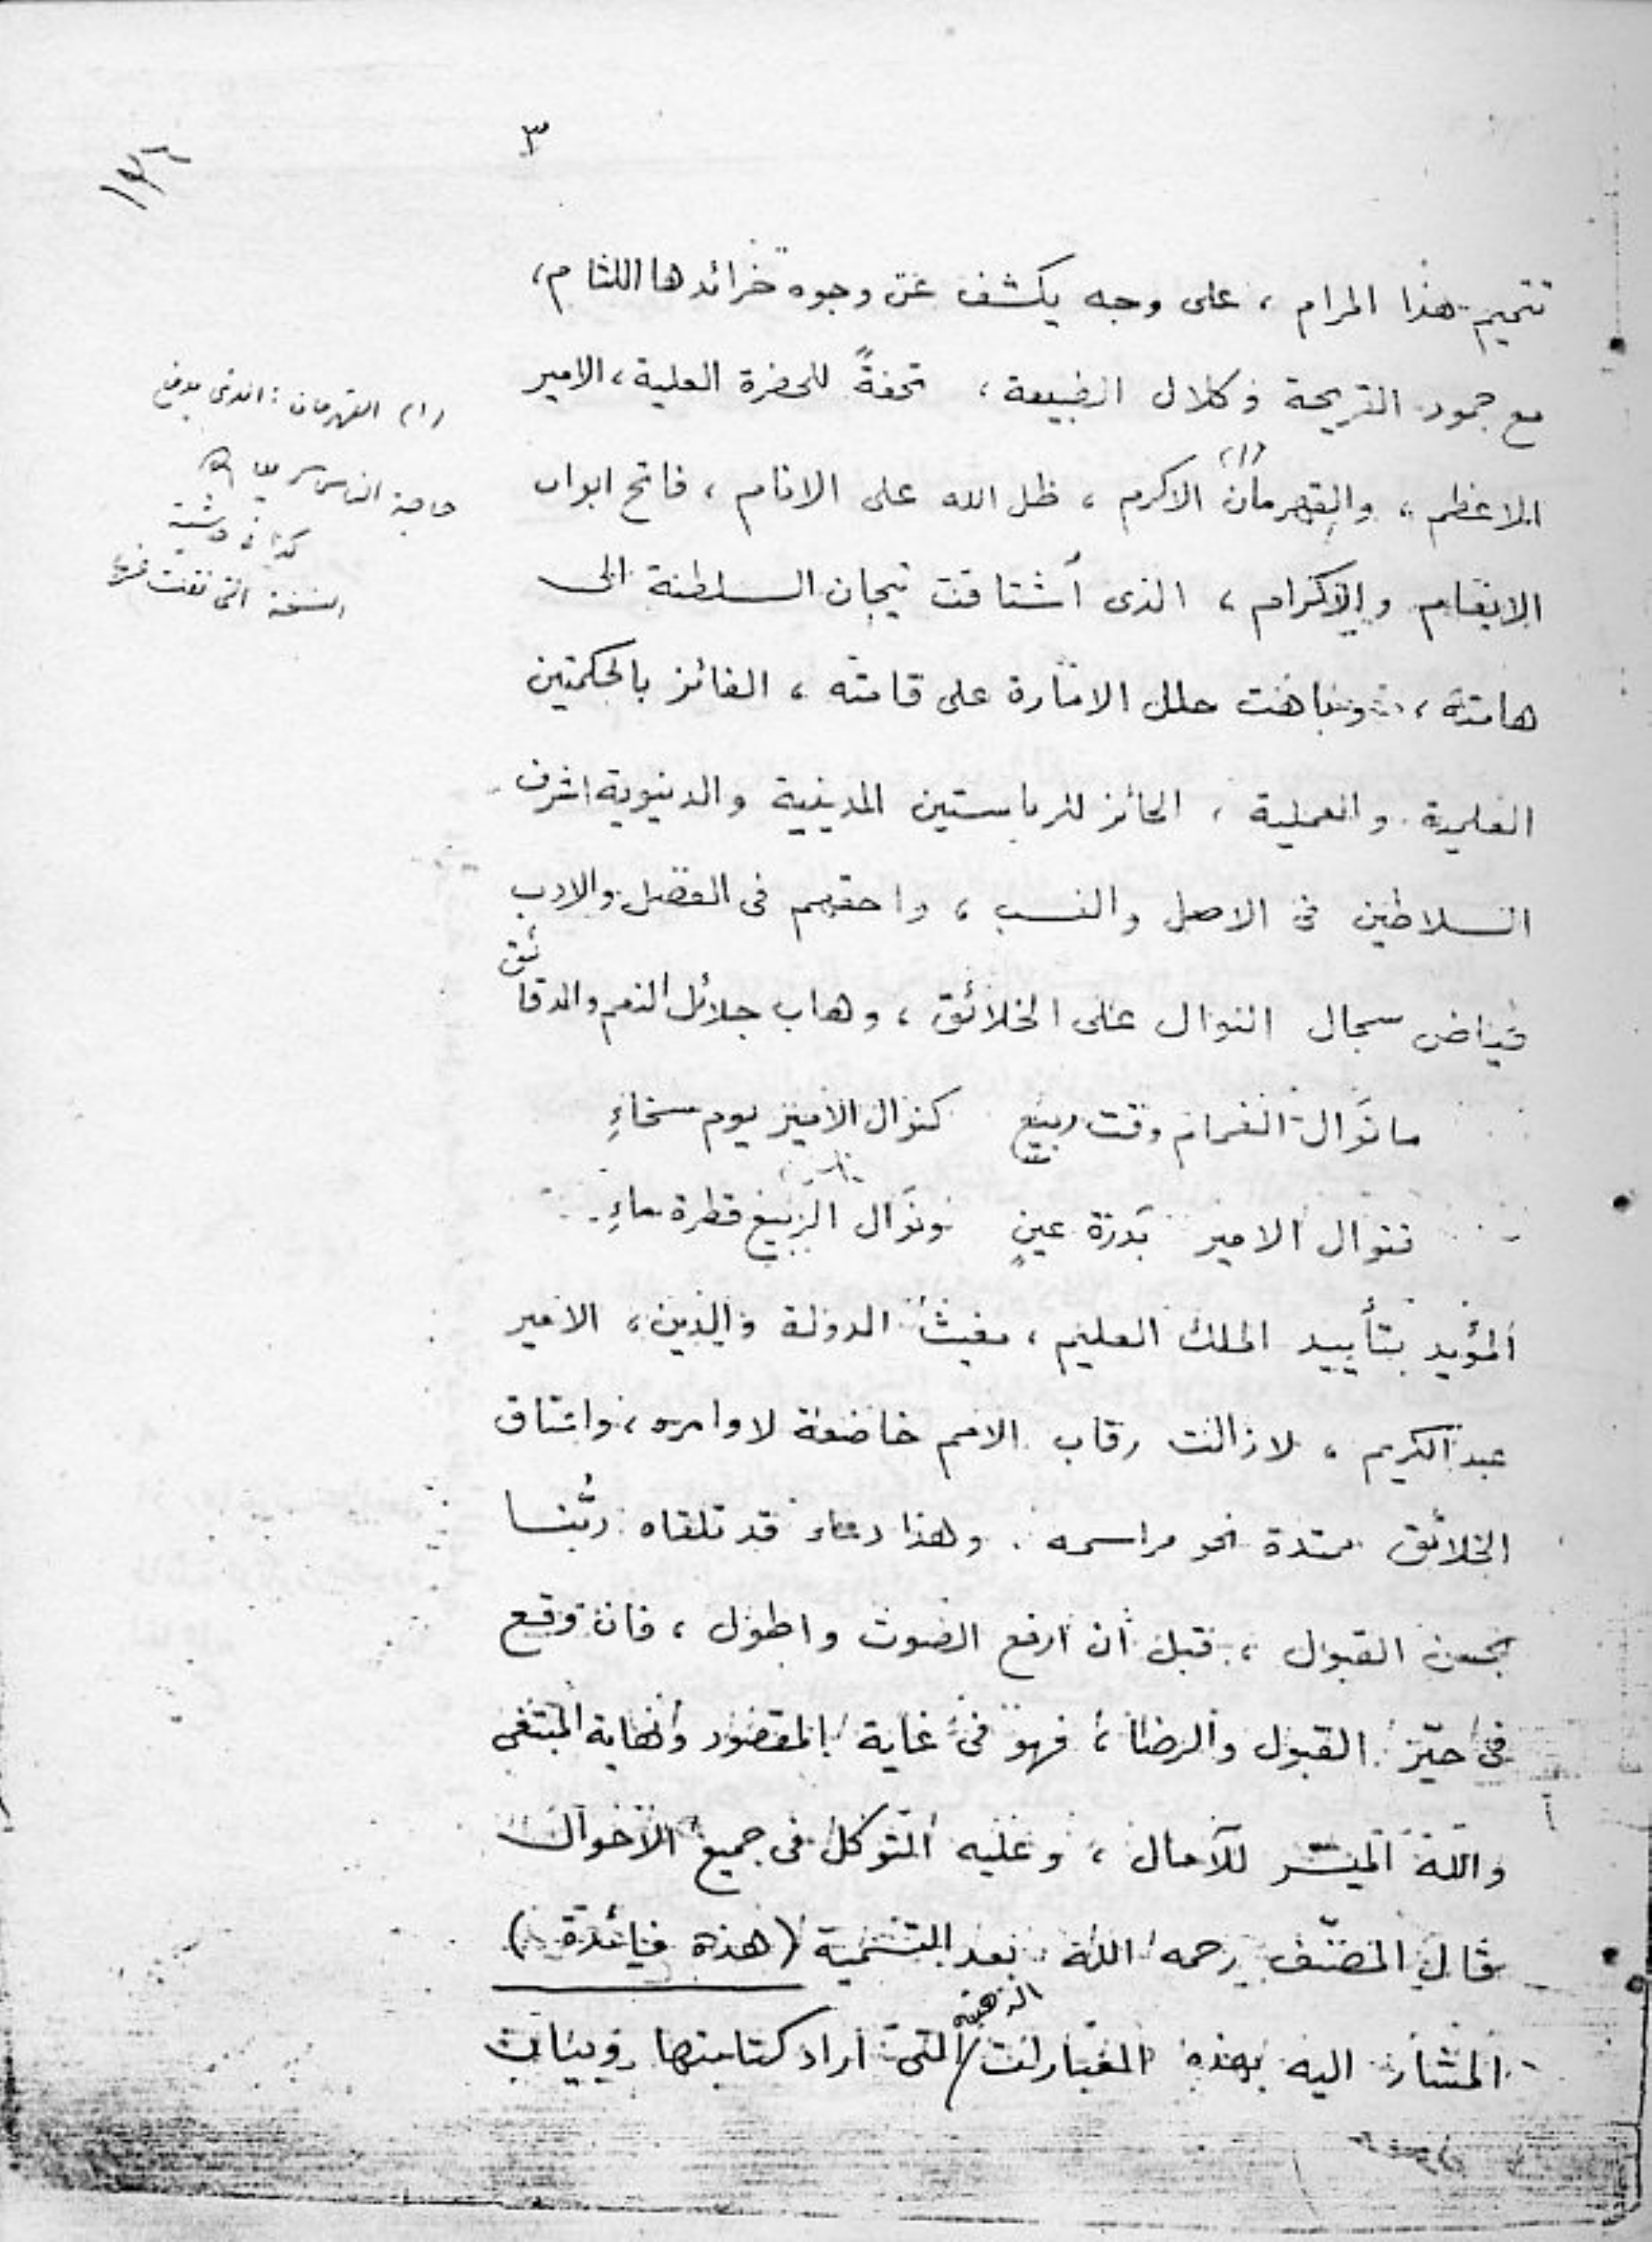 ٣
١٣٦
تتميم هذا المرام ، على وجه يكشف عن وجوه خرائدها اللثام ،
مع جمود القريحة وكلال الطبيعة ، تحفةً للحضرة العلية ، الامير
الاعظم ، والقهرمان (١) الاكرم ، ظل الله على الانام ، فاتح ابواب
الانعام والاكرام ، الذى أشتاقت تيجان السلطنة الى
هامته ، وتباهت حلل الامارة على قامته ، الفائز بالحكمتين
العلمية والعملية ، الحائز للرياستين الدينية والدنيوية اشرف
السلاطين فى الاصل والنسب ، واحقهم فى الفضل والادب
فياض سجال النوال على الخلائق ، وهاب جلائل النعم والدقائق
ما نوال الغمام وقت ربيع كنوال الامير يوم سخاءِ
فنوال الامير بدرة عينٍ ونوال الربيع قطرة ماءِ
المؤيد بتأييد الملك العليم ، مغيث الدولة والدين ، الامير
عبد الكريم ، لا زالت رقاب الامم خاضعة لاوامره ، واعناق
الخلائق ممتدة نحو مراسمه . وهذا دعاء قد تلقاه ربُّنا
بحسن القبول ، قبل أن ارفع الصوت واطول ، فان وقع
فى حيّز القبول والرضا ، فهو فى غاية المقصود ونهاية المبتغى
والله الميسر للآمال ، وعليه التوكل فى جميع الاحوال
قال المصنّف رحمه الله بعد التسمية (هذه فائدة)
المشار اليه بهذه العبارات الذهنية التى اراد كتابتها وبيان
(١) القهرمان : الذى يدفع
حاجة الناس سريعا اهـ
كذا فى حاشية
النسخة التى نقلت عنها